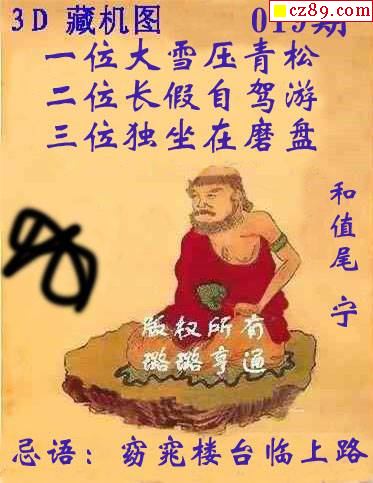 cz89.com
3D 藏机图
019期
一位大雪压青松
二位长假自驾游
三位独坐在磨盘
和值尾 宁
版权所有
璐璐亨通
忌语：窈窕楼台临上路